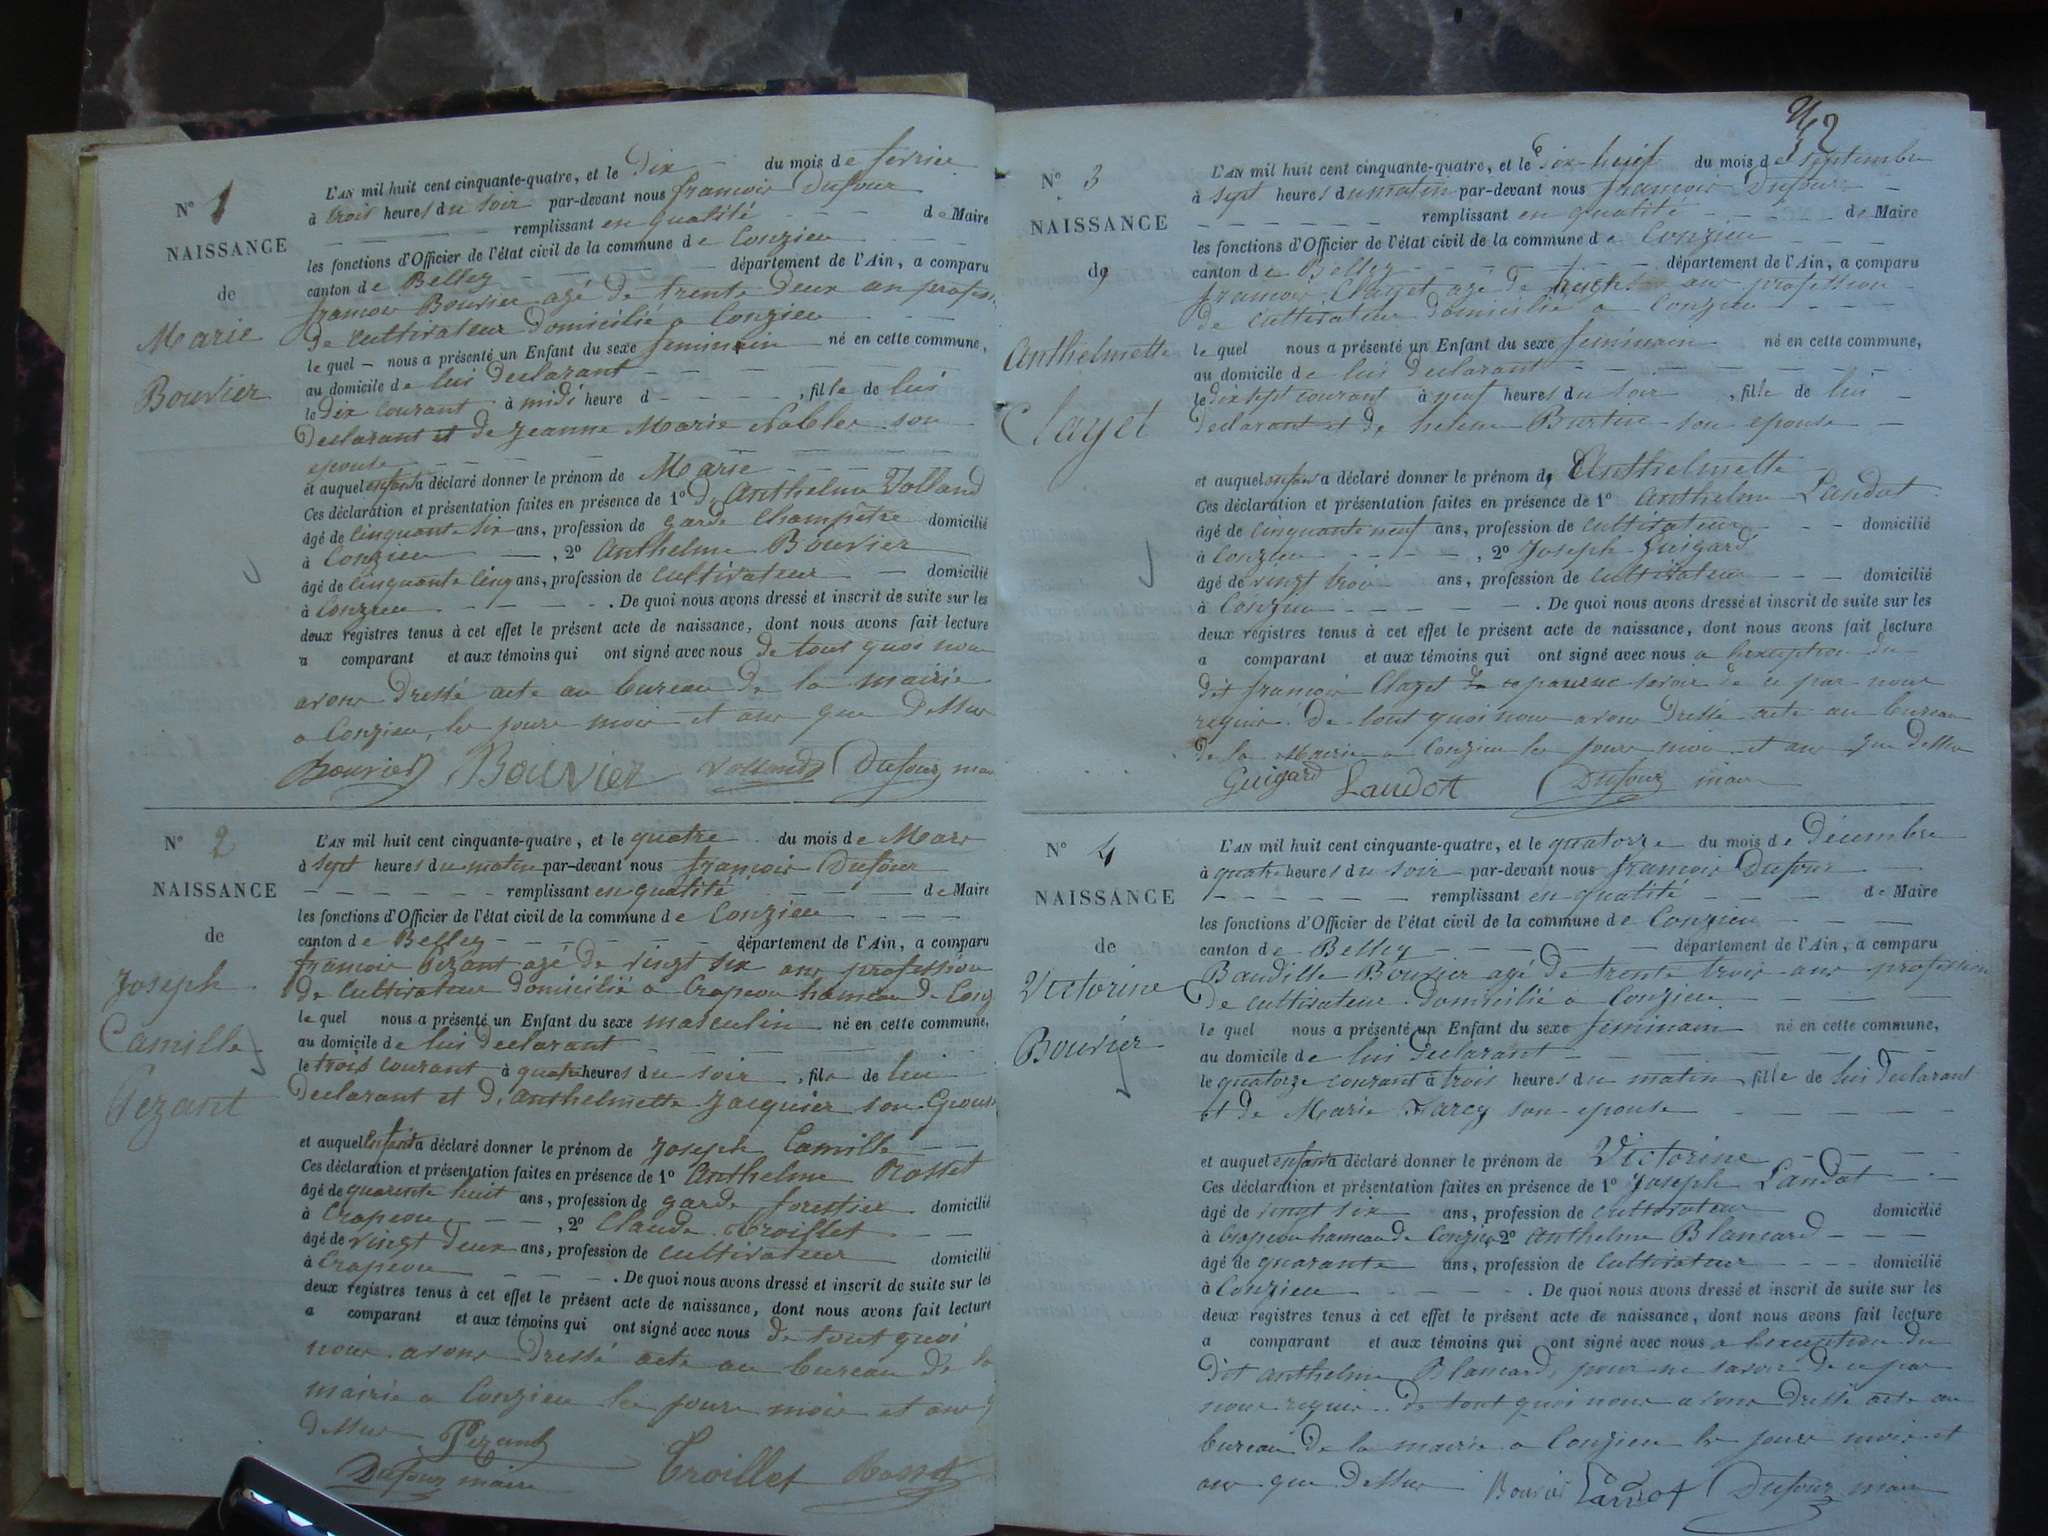 N° 1
NAISSANCE
de
Marie
Bouvier
L'AN mil huit cent cinquante-quatre, et le Dix du mois de fevrier
à trois heures du soir par-devant nous francois Dufour
remplissant en qualité de Maire
les fonctions d'Officier de l'état civil de la commune de Conzieu
canton de Belley département de l'Ain, a comparu
francois Bouvier agé de trente Deux an profession
de cultivateur domicilié a Conzieu
le quel nous a présenté un Enfant du sexe feminin né en cette commune,
au domicile de lui Declarant
le Dix courant à midi heure d , fille de lui
Declarant et de Jeanne Marie son
epouse
et auquel enfant a déclaré donner le prénom de Marie
Ces déclaration et présentation faites en présence de 1° D, Anthelme Volland
âgé de cinquante six ans, profession de garde Champêtre domicilié
à Conzieu , 2° Anthelme Bouvier
âgé de cinquante cinq ans, profession de cultivateur domicilié
à Conzieu . De quoi nous avons dressé et inscrit de suite sur les
deux registres tenus à cet effet le présent acte de naissance, dont nous avons fait lecture
a comparant et aux témoins qui ont signé avec nous de tout quoi nou
avons dressé acte au bureau de la mairie
a Conzieu les jours mois et an que Dessus
Bouvier Bouvier Volland Dufour maire
N° 2
NAISSANCE
de
Joseph
Camille
Pezant
L'AN mil huit cent cinquante-quatre, et le quatre du mois de Mars
à sept heures du matin par-devant nous francois Dufour
remplissant en qualité de Maire
les fonctions d'Officier de l'état civil de la commune de Conzieu
canton de Belley département de l'Ain, a comparu
francois Pezant agé de vingt six ans profession
de cultivateur domicilié a Crapeou hameau de Conz
le quel nous a présenté un Enfant du sexe masculin né en cette commune,
au domicile de lui declarant
le trois courant à quatre heures du soir , fils de lui
Declarant et d, anthelmette Jacquier son Epouse
et auquel enfant a déclaré donner le prénom de Joseph Camille
Ces déclaration et présentation faites en présence de 1° Anthelme Rosset
âgé de quarente huit ans, profession de garde forestier domicilié
à Crapeou , 2° Claude Troillet
âgé de vingt deux ans, profession de cultivateur domicilié
à Crapeou . De quoi nous avons dressé et inscrit de suite sur les
deux registres tenus à cet effet le présent acte de naissance, dont nous avons fait lecture
a comparant et aux témoins qui ont signé avec nous de tout quoi
nous avons Dressé acte au bureau de la
mairie a Conzieu les jours mois et an q
dessus Pezant
Dufour maire Troillet Rosset
N° 3
NAISSANCE
de
Anthelmette
Clayet
L'AN mil huit cent cinquante-quatre, et le dix-huit du mois de septembre
à sept heures du matin par-devant nous francois Dufour
remplissant en qualité de Maire
les fonctions d'Officier de l'état civil de la commune de Conzieu
canton de Belley département de l'Ain, a comparu
francois Clayet agé de ans profession
de cultivateur domicilié a Conzieu
le quel nous a présenté un Enfant du sexe feminin né en cette commune,
au domicile de lui Declarant
le dix sept courant à neuf heures du soir , fille de lui
declarant et de, helene Burtin son epouse
et auquel enfant a déclaré donner le prénom d, Anthelmette
Ces déclaration et présentation faites en présence de 1° anthelme Landot
âgé de cinquante neuf ans, profession de cultivateur domicilié
à Conzieu , 2° Joseph Guigard
âgé de vingt trois ans, profession de cultivateur domicilié
à Conzieu . De quoi nous avons dressé et inscrit de suite sur les
deux registres tenus à cet effet le présent acte de naissance, dont nous avons fait lecture
a comparant et aux témoins qui ont signé avec nous a lexception du
dit francois Clayet pour ne savoir de ce par nous
requis. De tout quoi nous avons Dressé acte au bureau
de la Mairie a Conzieu les jours mois et an que dessus
Guigard Landot Dufour maire
N° 4
NAISSANCE
de
Victorine
Bouvier
L'AN mil huit cent cinquante-quatre, et le quatorze du mois de Décembre
à quatre heures du soir par-devant nous francois Dufour
remplissant en qualité de Maire
les fonctions d'Officier de l'état civil de la commune de Conzieu
canton de Belley département de l'Ain, a comparu
Baudille Bouvier agé de trente trois ans profession
de cultivateur domicilié a Conzieu
le quel nous a présenté un Enfant du sexe feminin né en cette commune,
au domicile de lui Declarant
le quatorze courant à trois heures du matin , fille de lui declarant
et de Marie Narcy son epouse
et auquel enfant a déclaré donner le prénom de Victorine
Ces déclaration et présentation faites en présence de 1° Joseph Landot
âgé de vingt six ans, profession de cultivateur domicilié
à Crapeou hameau de Conzieu 2° anthelme Blancard
âgé de quarante ans, profession de cultivateur domicilié
à Conzieu . De quoi nous avons dressé et inscrit de suite sur les
deux registres tenus à cet effet le présent acte de naissance, dont nous avons fait lecture
a comparant et aux témoins qui ont signé avec nous a lexception du
Dit anthelme Blancard, pour ne savoir de ce par
nous requis. De tout quoi nous avons dressé acte au
bureau de la mairie a Conzieu les jours mois et
an que dessus Bouvier Landot Dufour maire